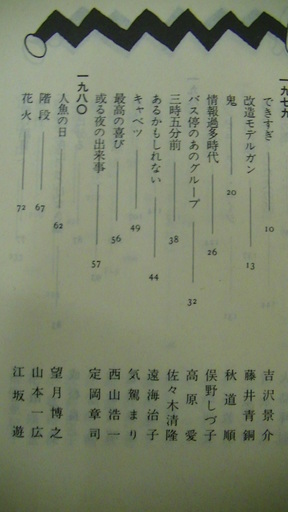 一九七九
できすぎ 10 吉沢景介
改造モデルガン 13 藤井青銅
鬼 20 秋道順
情報過多時代 26 俣野しづ子
バス停のあのグループ 32 高原愛
三時五分前 38 佐々木清隆
あるかもしれない 44 遠海治子
キャベツ 49 気駕まり
最高の喜び 56 西山浩一
或る夜の出来事 57 定岡章司
一九八〇
人魚の日 62 望月博之
階段 67 山本一広
花火 72 江坂遊